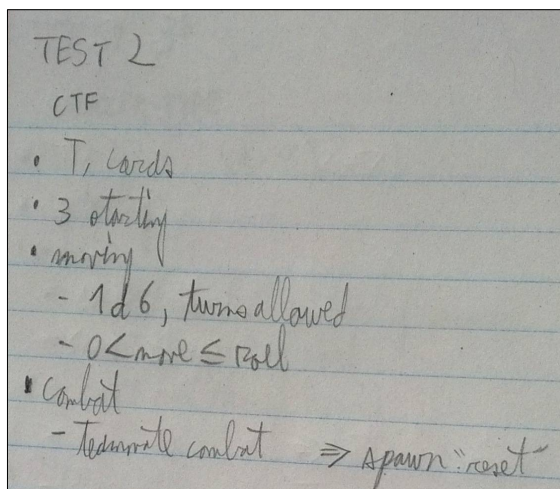 TEST 2
CTF
• T, cards
• 3 starting
• moving
- 1d6, turns allowed
- 0 < move ≤ roll
• combat
- teammate combat ⇒ spawn "reset"